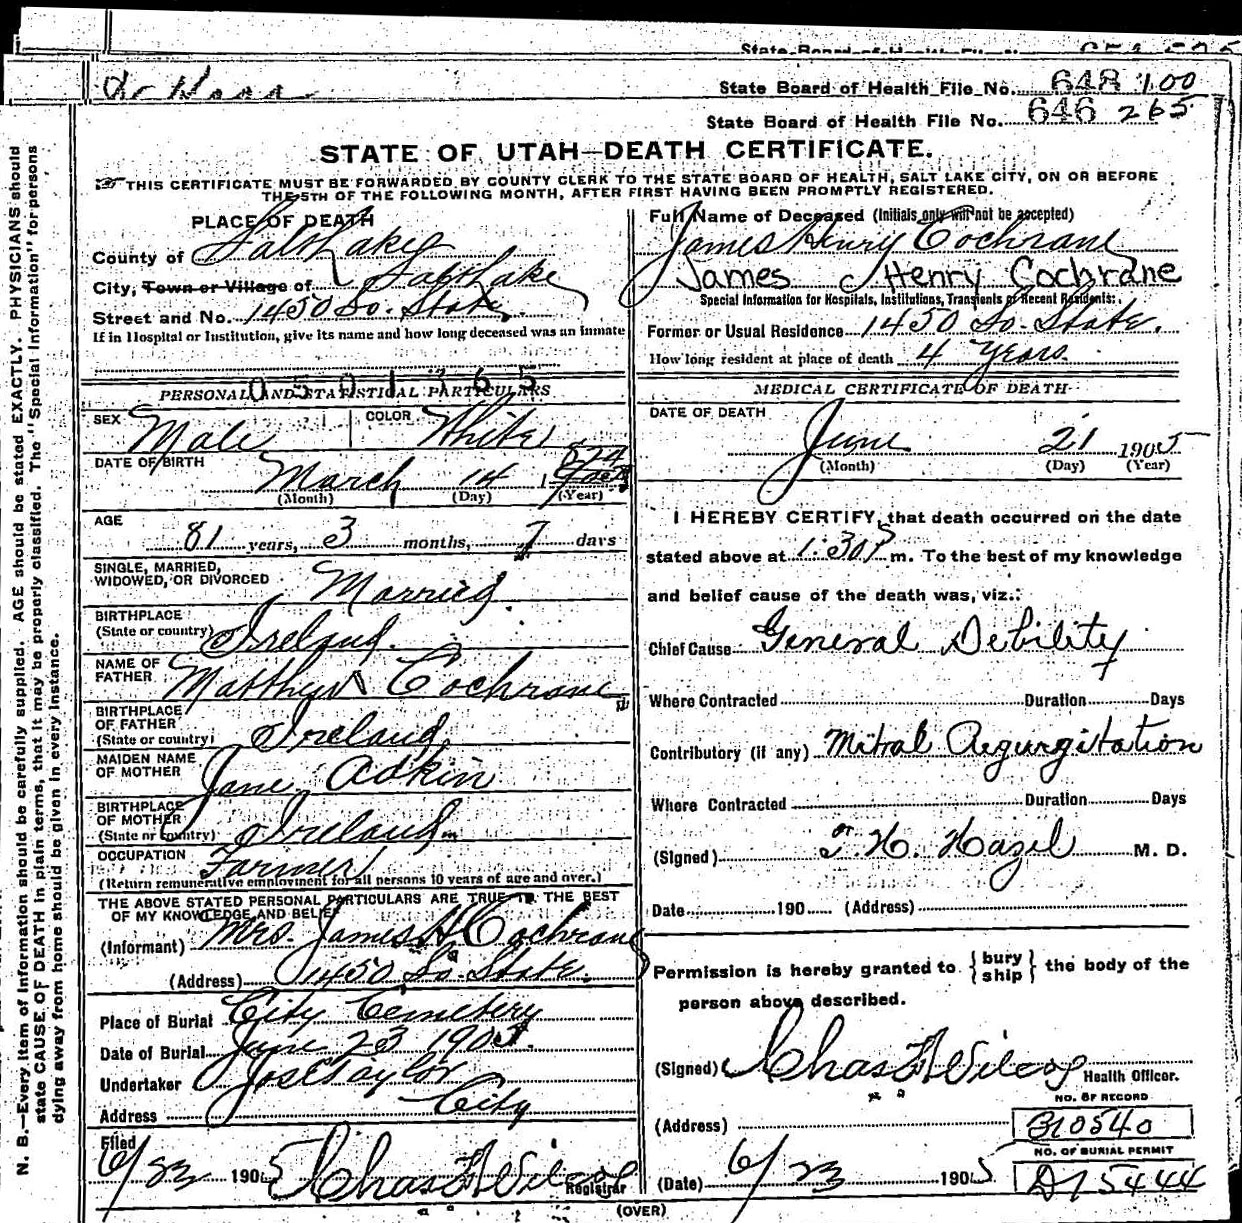 State Board of Health File No.
Dr
State Board of Health File No. 648 100
State Board of Health File No. 646 265
STATE OF UTAH—DEATH CERTIFICATE.
THIS CERTIFICATE MUST BE FORWARDED BY COUNTY CLERK TO THE STATE BOARD OF HEALTH, SALT LAKE CITY, ON OR BEFORE
THE 5TH OF THE FOLLOWING MONTH, AFTER FIRST HAVING BEEN PROMPTLY REGISTERED.
PLACE OF DEATH
County of Salt Lake
City, Town or Village of Salt Lake
Street and No. 1450 So. State.
If in Hospital or Institution, give its name and how long deceased was an inmate
0501365
PERSONAL AND STATISTICAL PARTICULARS
SEX Male COLOR White
DATE OF BIRTH March 14 1824
(Month) (Day) (Year)
AGE 81 years, 3 months, 7 days
SINGLE, MARRIED,
WIDOWED, OR DIVORCED Married.
BIRTHPLACE
(State or country) Ireland.
NAME OF
FATHER Matthew Cochrane
BIRTHPLACE
OF FATHER
(State or country) Ireland
MAIDEN NAME
OF MOTHER Jane Adkin
BIRTHPLACE
OF MOTHER
(State or country) Ireland
OCCUPATION Farmer
(Return remunerative employment for all persons 10 years of age and over.)
THE ABOVE STATED PERSONAL PARTICULARS ARE TRUE TO THE BEST
OF MY KNOWLEDGE AND BELIEF
(Informant) Mrs. James H Cochrane
(Address) 1450 So. State.
Place of Burial City Cemetery
Date of Burial June 23 1905.
Undertaker Jos E Taylor
Address City
Filed
6/23 1905 Chas F Wilcox
Registrar
Full Name of Deceased (Initials only will not be accepted)
James Henry Cochrane
James Henry Cochrane
Special Information for Hospitals, Institutions, Transients or Recent Residents:
Former or Usual Residence 1450 So. State.
How long resident at place of death 4 Years
MEDICAL CERTIFICATE OF DEATH
DATE OF DEATH
June 21 1905
(Month) (Day) (Year)
I HEREBY CERTIFY, that death occurred on the date
stated above at 1:30 P m. To the best of my knowledge
and belief cause of the death was, viz.:
Chief Cause General Debility
Where Contracted Duration Days
Contributory (if any) Mitral Regurgitation
Where Contracted Duration Days
(Signed) T. H. Hazel M. D.
Date 190 (Address)
Permission is hereby granted to {bury
ship} the body of the
person above described.
(Signed) Chas F Wilcox
Health Officer.
NO. OF RECORD
(Address) 310540
NO. OF BURIAL PERMIT
(Date) 6/23 1905 D15444
(OVER)
N. B.—Every item of information should be carefully supplied. AGE should be stated EXACTLY. PHYSICIANS should
state CAUSE OF DEATH in plain terms, that it may be properly classified. The "Special Information" for persons
dying away from home should be given in every instance.